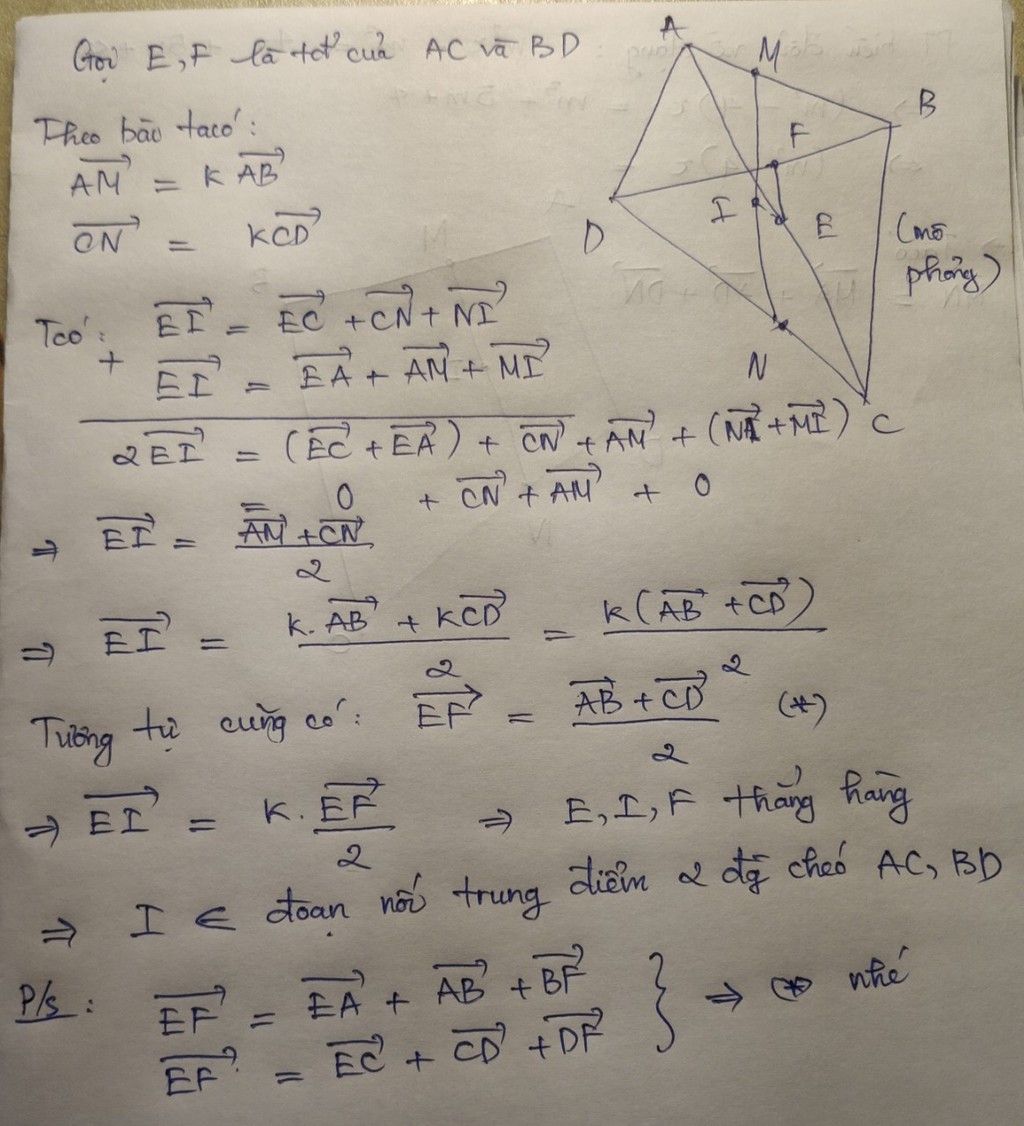 Gọi E, F là tđ của AC và BD
Theo bào ta có:
$\overrightarrow{AM} = k\overrightarrow{AB}$
$\overrightarrow{CN} = k\overrightarrow{CD}$
Tcó: $\overrightarrow{EI} = \overrightarrow{EC} + \overrightarrow{CN} + \overrightarrow{NI}$
+ $\overrightarrow{EI} = \overrightarrow{EA} + \overrightarrow{AM} + \overrightarrow{MI}$
$2\overrightarrow{EI} = (\overrightarrow{EC} + \overrightarrow{EA}) + \overrightarrow{CN} + \overrightarrow{AM} + (\overrightarrow{NI} + \overrightarrow{MI})$
$= 0 + \overrightarrow{CN} + \overrightarrow{AM} + 0$
$\Rightarrow \overrightarrow{EI} = \frac{\overrightarrow{AM} + \overrightarrow{CN}}{2}$
$\Rightarrow \overrightarrow{EI} = \frac{k.\overrightarrow{AB} + k\overrightarrow{CD}}{2} = \frac{k(\overrightarrow{AB} + \overrightarrow{CD})}{2}$
Tương tự cũng có: $\overrightarrow{EF} = \frac{\overrightarrow{AB} + \overrightarrow{CD}}{2}$ (*)
$\Rightarrow \overrightarrow{EI} = k.\frac{\overrightarrow{EF}}{2}$ ⇒ E, I, F thẳng hàng
⇒ I ∈ đoạn nối trung điểm 2 đg̃ chéo AC, BD
P/s: $\overrightarrow{EF} = \overrightarrow{EA} + \overrightarrow{AB} + \overrightarrow{BF}$
$\overrightarrow{EF} = \overrightarrow{EC} + \overrightarrow{CD} + \overrightarrow{DF}$
} ⇒ (*) nhé
A
M
B
F
D
I
E
(mô
phỏng)
N
C